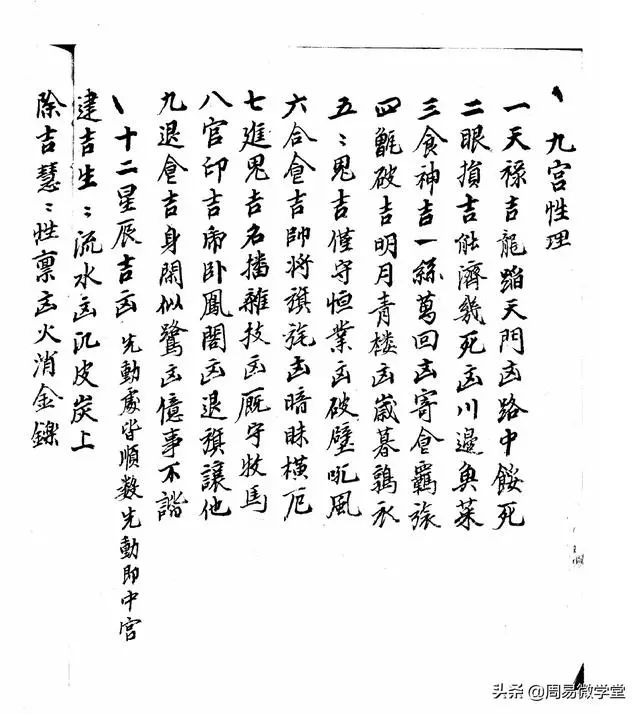 丶九宮性理
一天祿吉龍蹈天門凶路中餒死
二眼損吉能濟幾死凶川邉奥菜
三食神吉一絲萬回凶寄食羈旅
四甑破吉明月青楼凶歳暮鶉衣
五〻鬼吉僅守恒業凶破壁吼風
六合食吉帥将旗旄凶暗昧横厄
七進鬼吉名播雜技凶厩守牧馬
八官印吉席卧鳳閣凶退旗讓他
九退食吉身閑似鷺凶億事不諧
丶十二星辰吉凶 先動處皆順数先動即中宮
建吉生〻流水凶几皮炭上
除吉慧〻性禀凶火消金鑠
头条 @周易微学堂